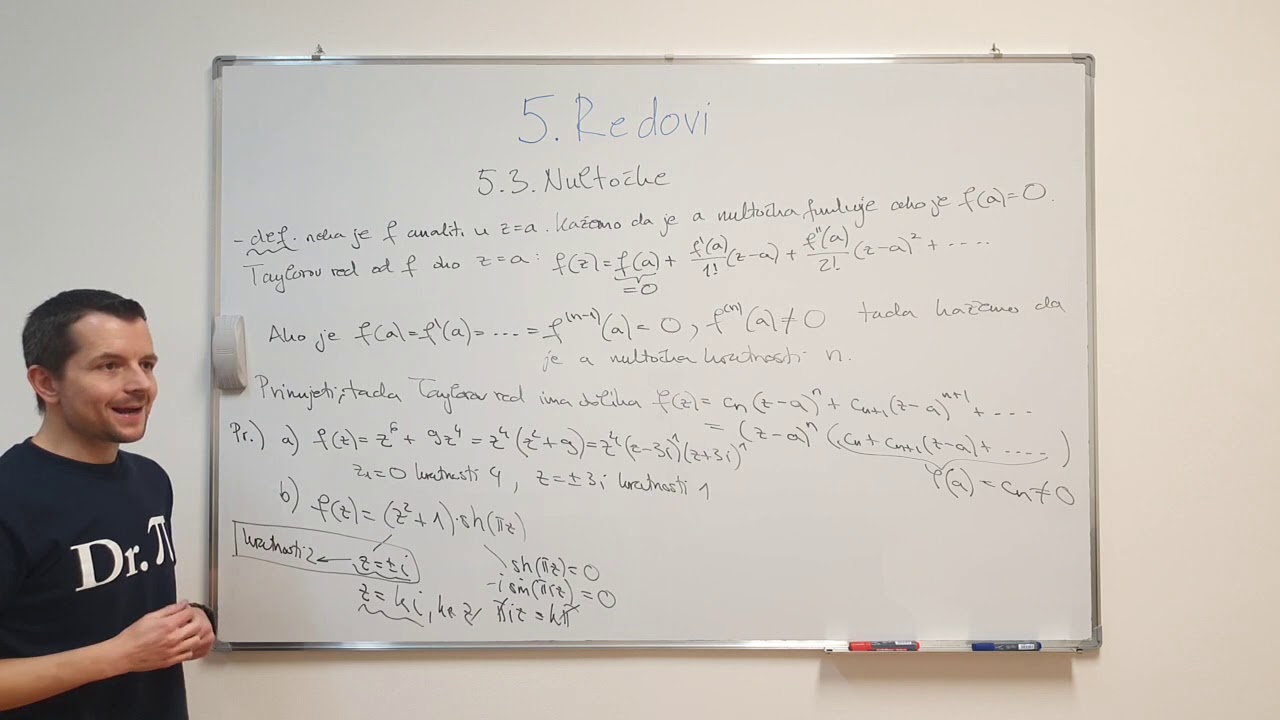 5. Redovi
5.3. Nultočke
- def. neka je f analit. u z=a. Kažemo da je a nultočka funkcije ako je f(a)=0.
Taylorov red od f oko z=a: f(z)=f(a) + f'(a)/1! (z-a) + f''(a)/2! (z-a)² + ....
=0
Ako je f(a)=f'(a)= ... = f^(n-1)(a) = 0, f^(n)(a) ≠ 0 tada kažemo da
je a nultočka kratnosti n.
Primijeti, tada Taylorov red ima oblika f(z)= cn(z-a)^n + cn+1(z-a)^n+1 + ...
= (z-a)^n (cn + cn+1(z-a) + ....)
φ(a) = cn ≠ 0
Pr.) a) f(z) = z⁶ + 9z⁴ = z⁴(z²+9) = z⁴(z-3i)¹(z+3i)¹
z₁=0 kratnosti 4, z=±3i kratnosti 1
b) f(z) = (z²+1)·sh(πz)
kratnosti 2 ← z=±i
sh(πz)=0
-i sin(πiz)=0
z=ki, k∈Z πiz=kπ
Dr.π